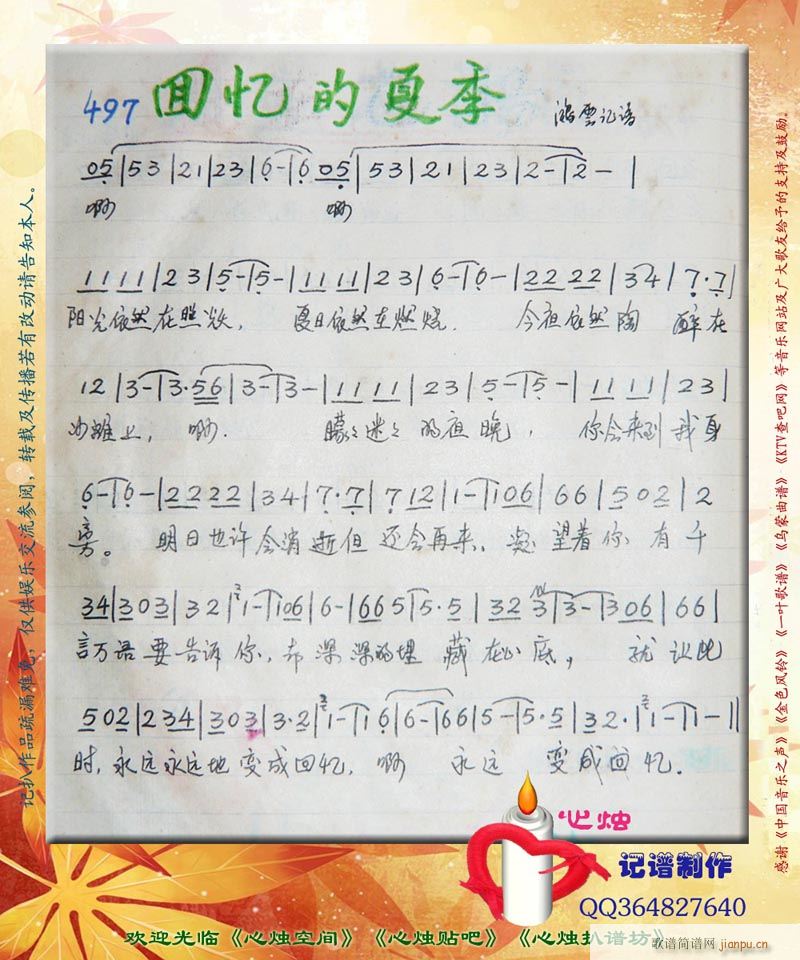 497 回忆的夏季 鸿雲记谱
05|53|21|23|6-|6 05|53|21|23|2-|2-|
啊 啊
11 11|23|5-|5-|11 11|23|6-|6-|22 22|34|7·7|
阳光依然在照烁, 夏日依然在燃烧. 今夜依然陶 醉在
12|3-|3·56|3-|3-|11 11|23|5-|5-|11 11|23|
沙滩上, 啊. 朦々迷々的夜晚, 你会来到我身
6-|6-|22 22|34|7·7|7 12|1-|106|66|502|2
旁。 明日也许会消逝但还会再来、凝望着你有千
34|303|32|1-|106|6-|66 5|5·5|32 3|3-|306|66|
言万语要告诉你,却深深的埋藏在心底, 就让此
502|234|303|3·2|1-|1 6|6-|66|5-|5·5|32·|1-|1-||
时,永远永远地变成回忆, 啊 永远 变成回忆.
记扒作品疏漏难免,仅供娱乐交流参阅,转载及传播若有改动请告知本人。
感谢《中国音乐之声》《金色风铃》《一叶歌谱》《乌蒙曲谱》《KTV查吧网》等音乐网站及广大歌友给予的支持及鼓励。
心烛
记谱制作
QQ364827640
欢迎光临《心烛空间》《心烛贴吧》《心烛扒谱坊》
歌谱简谱网 jianpu.cn